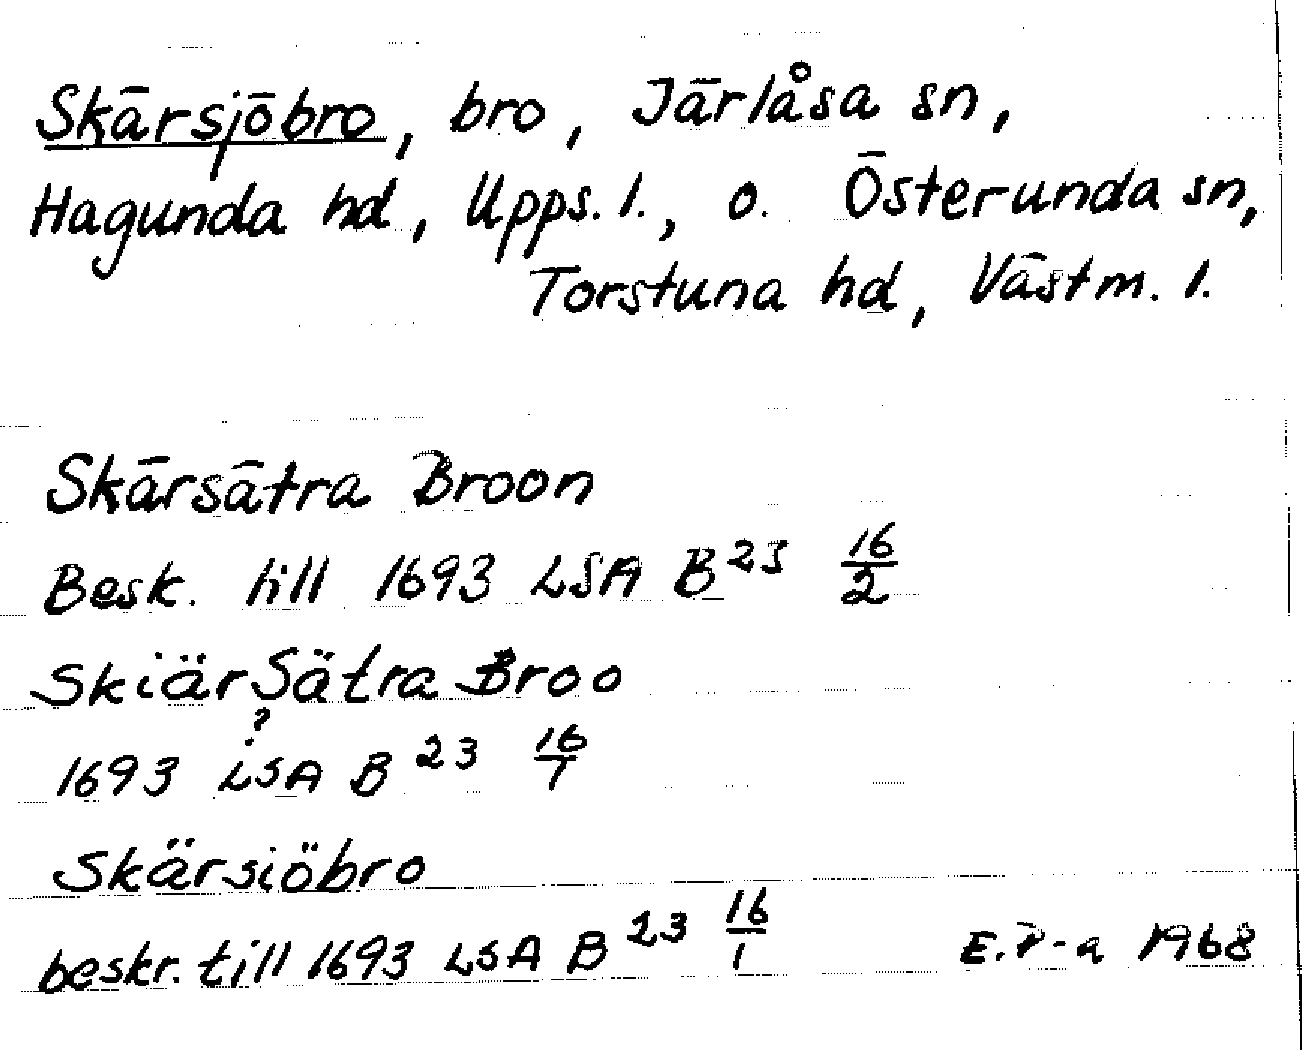 Skärsjöbro, bro, Järlåsa sn,
Hagunda hd, Upps. l., o. Österunda sn,
Torstuna hd, Västm. l.
Skärsätra Broon
Besk. till 1693 LSA B²³ 16/2
SkiärSätra Broo
?
1693 LSA B²³ 16/1
Skärsiöbro
beskr. till 1693 LSA B²³ 16/1 E. P-a 1968